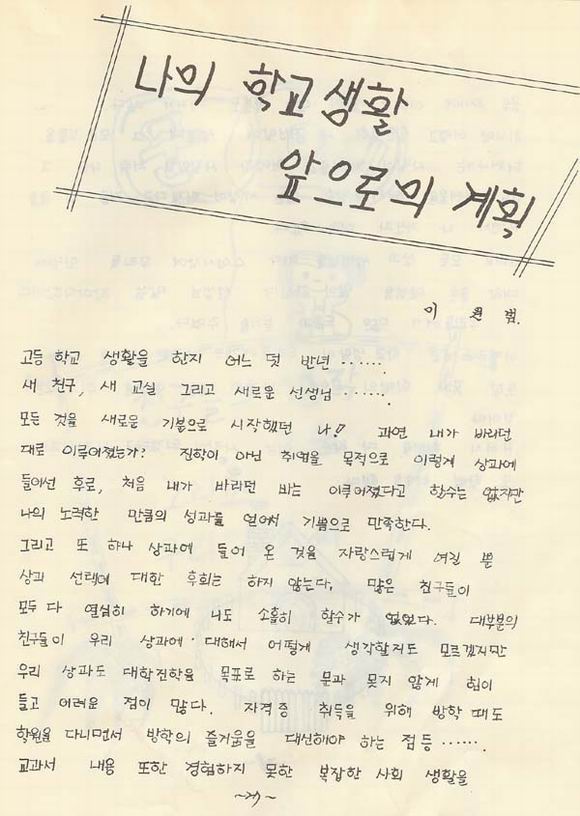 나의 학교생활
앞으로의 계획
이 원 범.
고등학교 생활을 한지 어느 덧 반년 ‥‥‥.
새 친구, 새 교실 그리고 새로운 선생님 ‥‥‥.
모든 것을 새로운 기분으로 시작했던 나! 과연 내가 바라던
대로 이루어졌는가? 진학이 아닌 취업을 목적으로 이렇게 상과에
들어선 후로, 처음 내가 바라던 바는 이루어졌다고 할수는 없지만
나의 노력한 만큼의 성과를 얻어서 기쁨으로 만족한다.
그리고 또 하나 상과에 들어 온 것을 자랑스럽게 여길 뿐
상과 선택에 대한 후회는 하지 않는다, 많은 친구들이
모두 다 열심히 하기에 나도 소홀히 할수가 없었다. 대부분의
친구들이 우리 상과에 대해서 어떻게 생각할지도 모르겠지만
우리 상과도 대학진학을 목표로 하는 문과 못지 않게 힘이
들고 어려운 점이 많다. 자격증 취득을 위해 방학 때도
학원을 다니면서 방학의 즐거움을 대신해야 하는 점등 ‥‥‥.
교과서 내용 또한 경험하지 못한 복잡한 사회 생활을